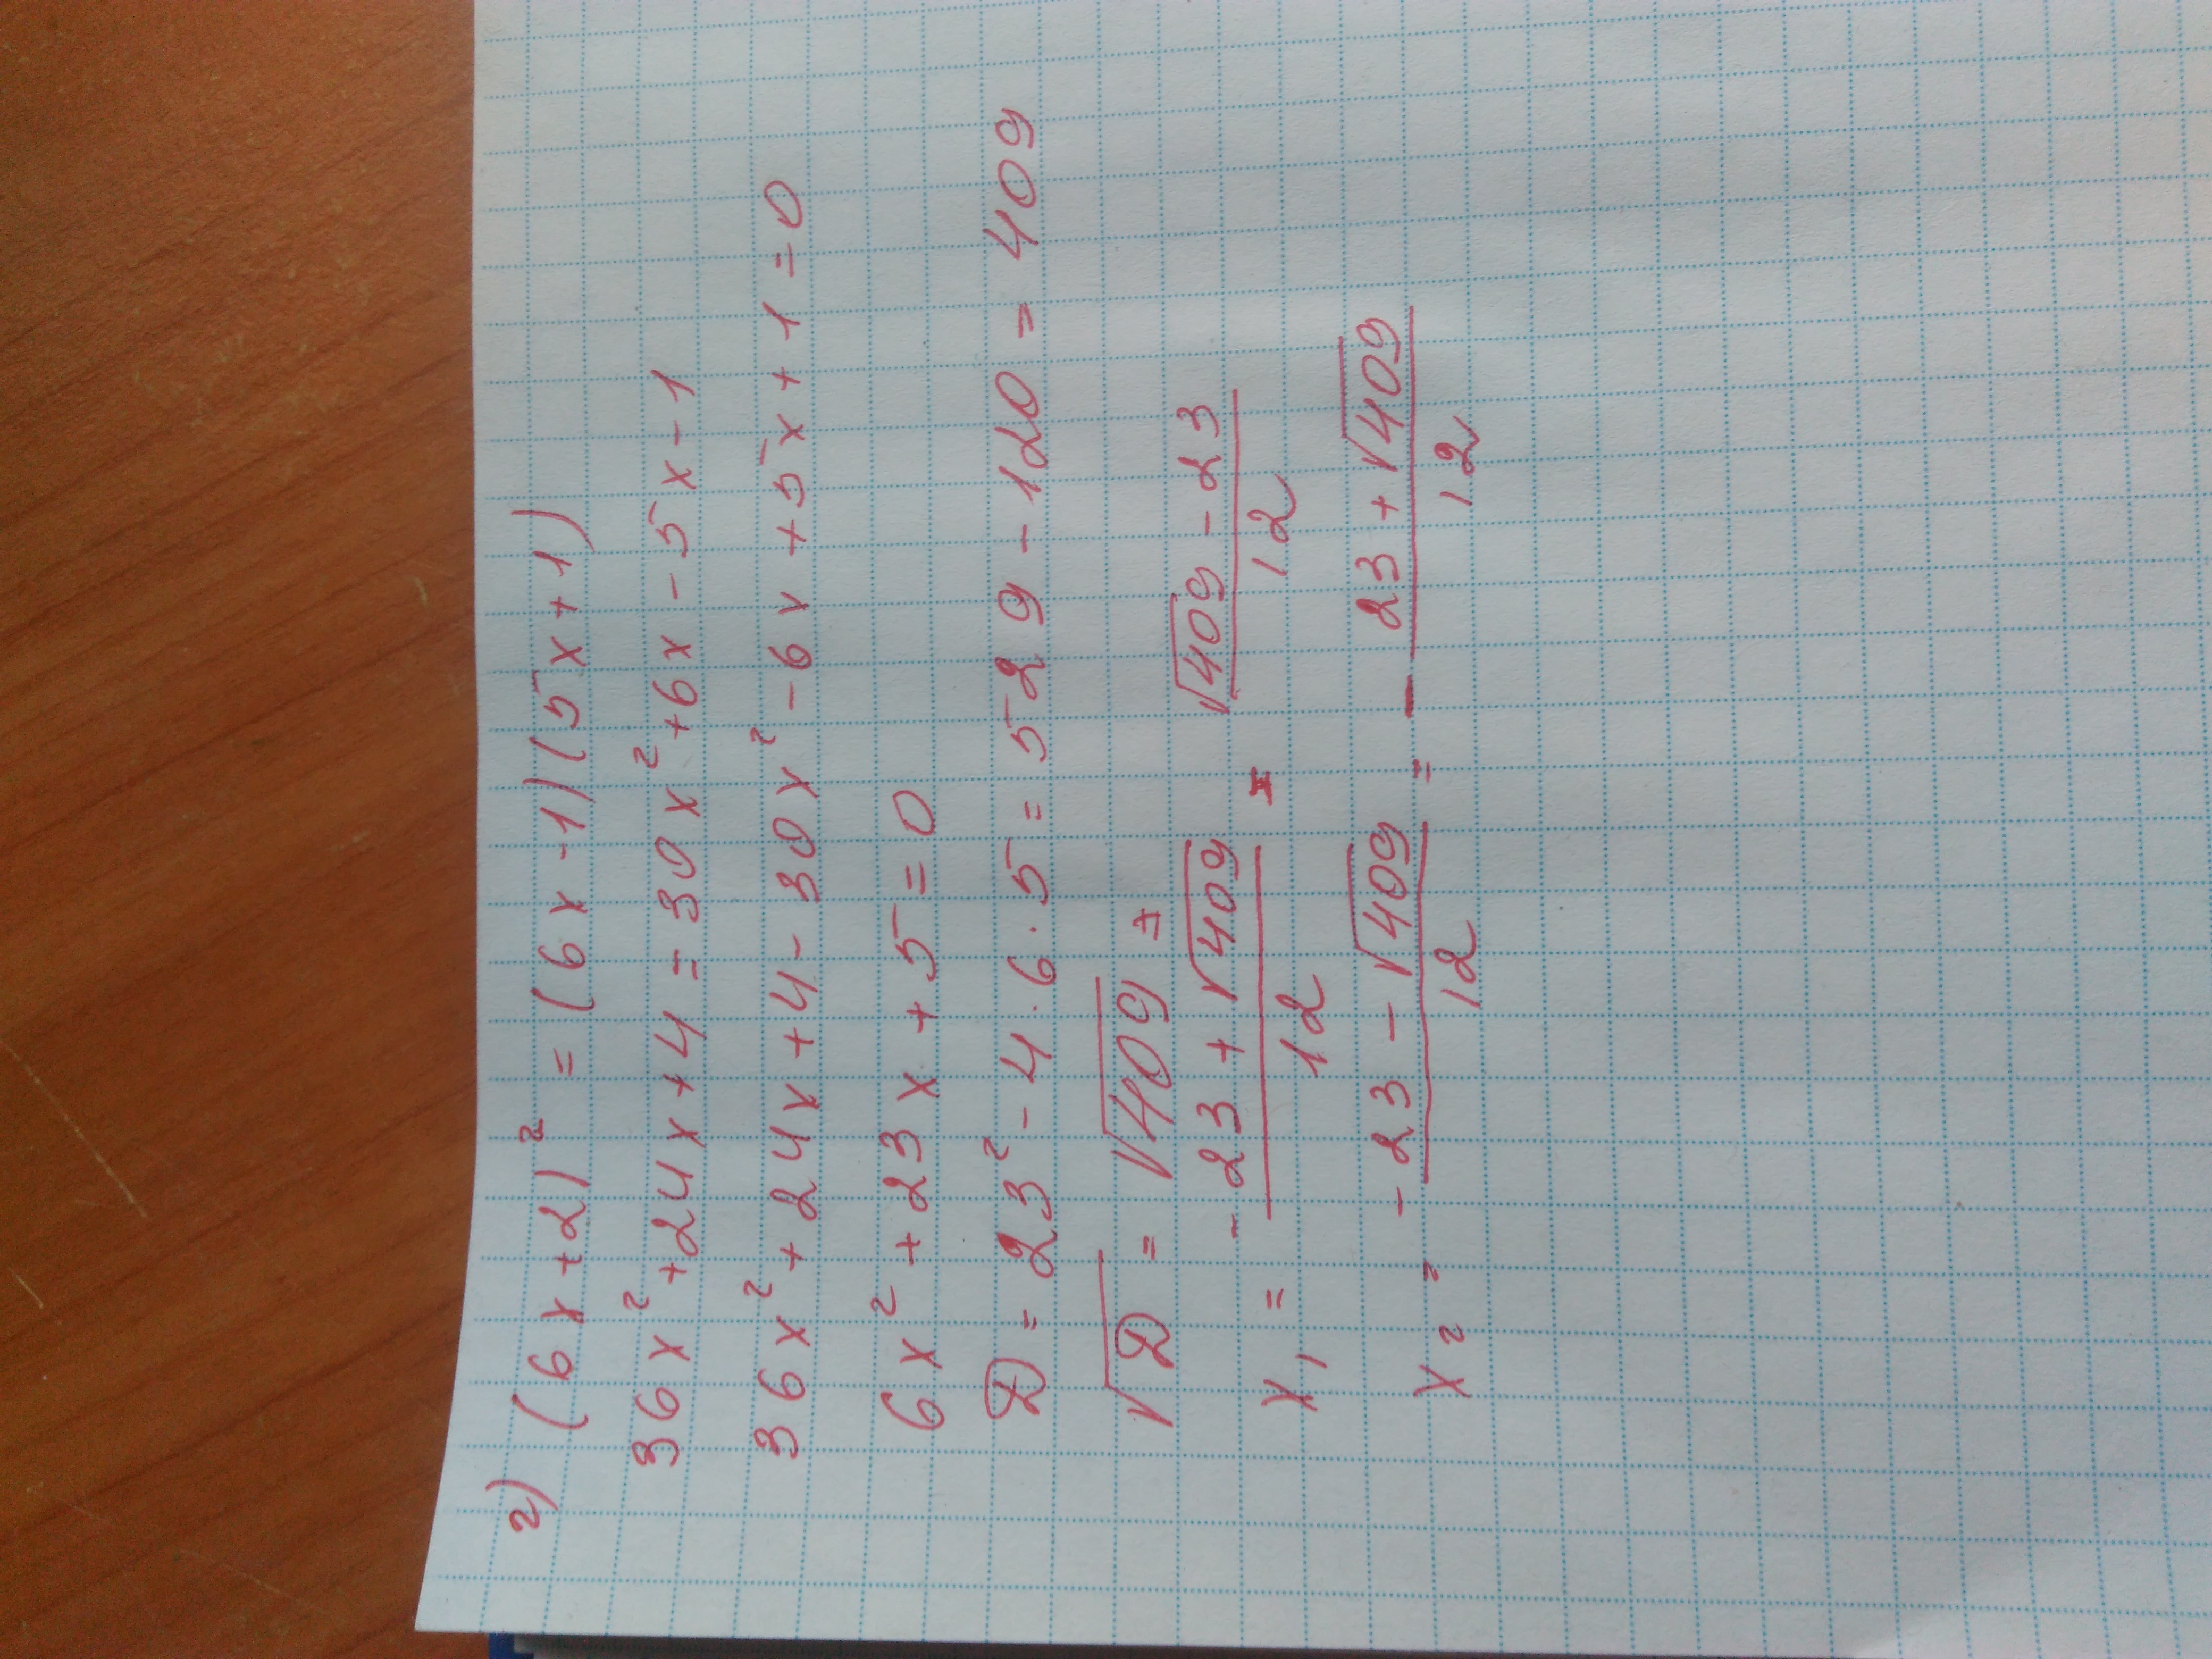 г) (6x+2)² = (6x-1)(5x+1)
36x²+24x+4=30x²+6x-5x-1
36x²+24x+4-30x²-6x+5x+1=0
6x²+23x+5=0
D=23²-4·6·5=529-120=409
√D = √409 =
x₁ = (-23+√409)/12 = (√409-23)/12
x₂ = (-23-√409)/12 = -(23+√409)/12